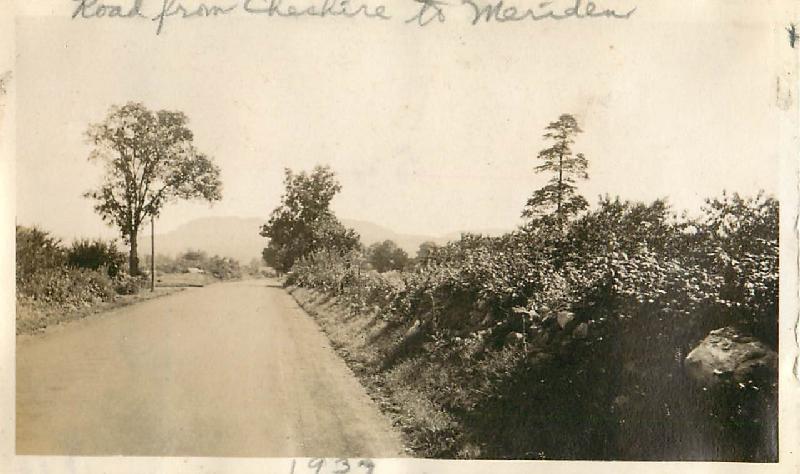 Road from Cheshire to Meriden
1937